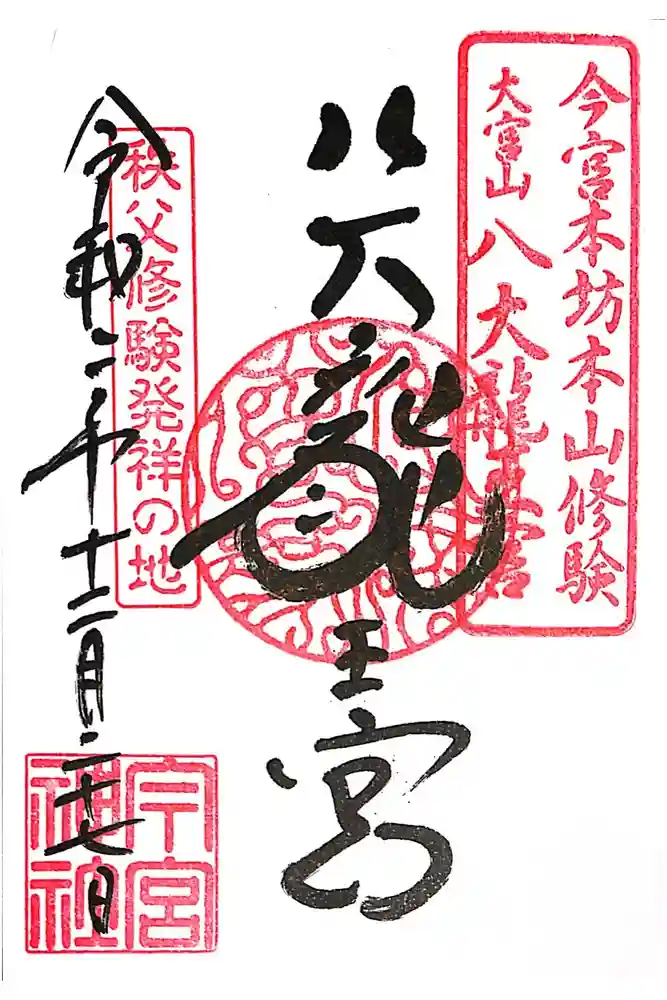 今宮本坊本山修験
大宮山 八大龍王宮
八大龍王宮
秩父修験発祥の地
令和二年十二月二十七日
今宮
神社